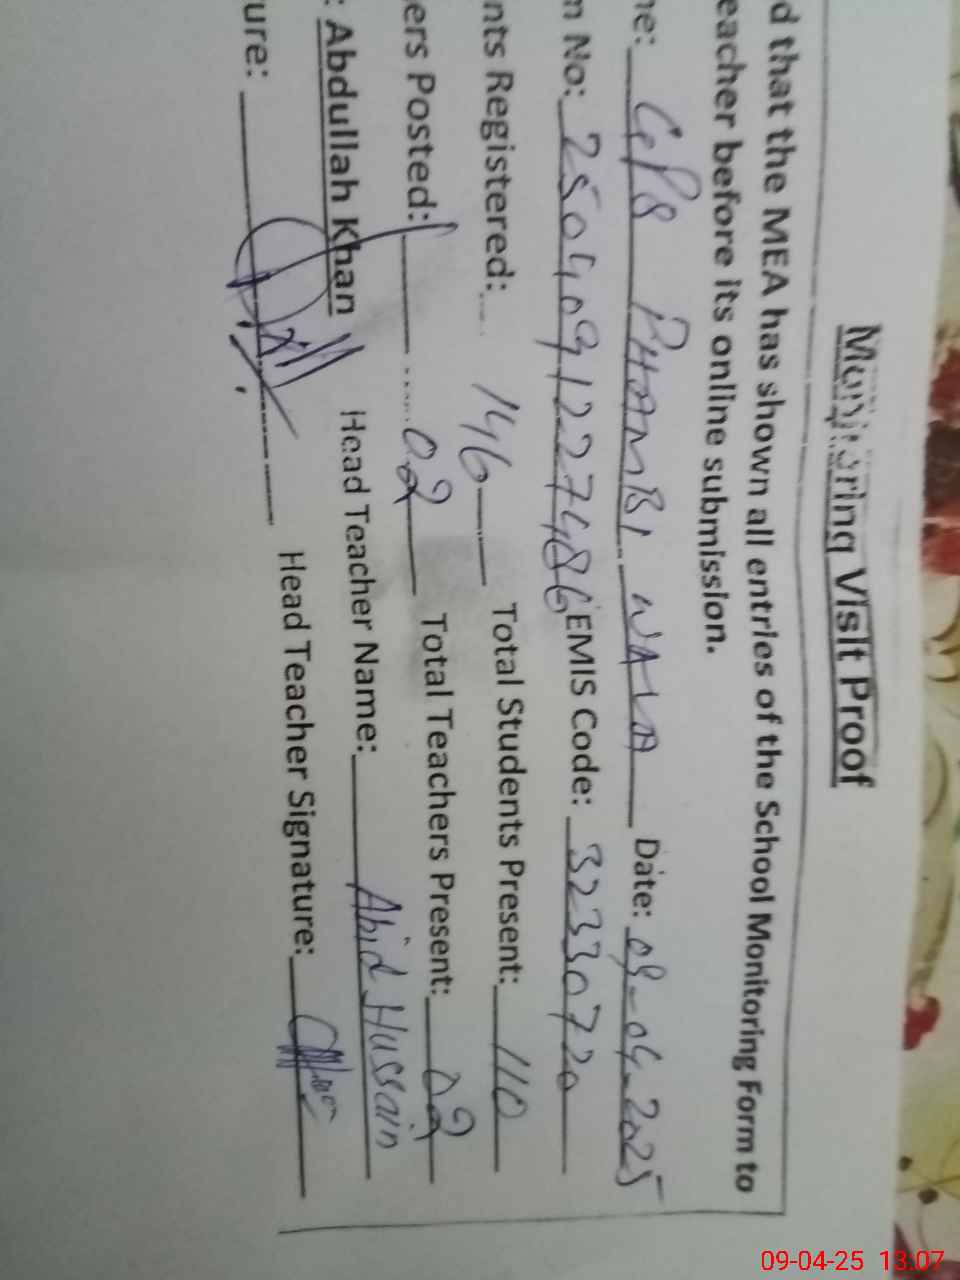 Monitoring Visit Proof
d that the MEA has shown all entries of the School Monitoring Form to
eacher before its online submission.
ne: GPS DHAMBI WALA Date: 09-04-2025
n No: 250409122748 EMIS Code: 32330720
nts Registered: 146 Total Students Present: 110
ers Posted: 02 Total Teachers Present: 02
: Abdullah Khan Head Teacher Name: Abid Hussain
ure: Head Teacher Signature:
09-04-25 13:07